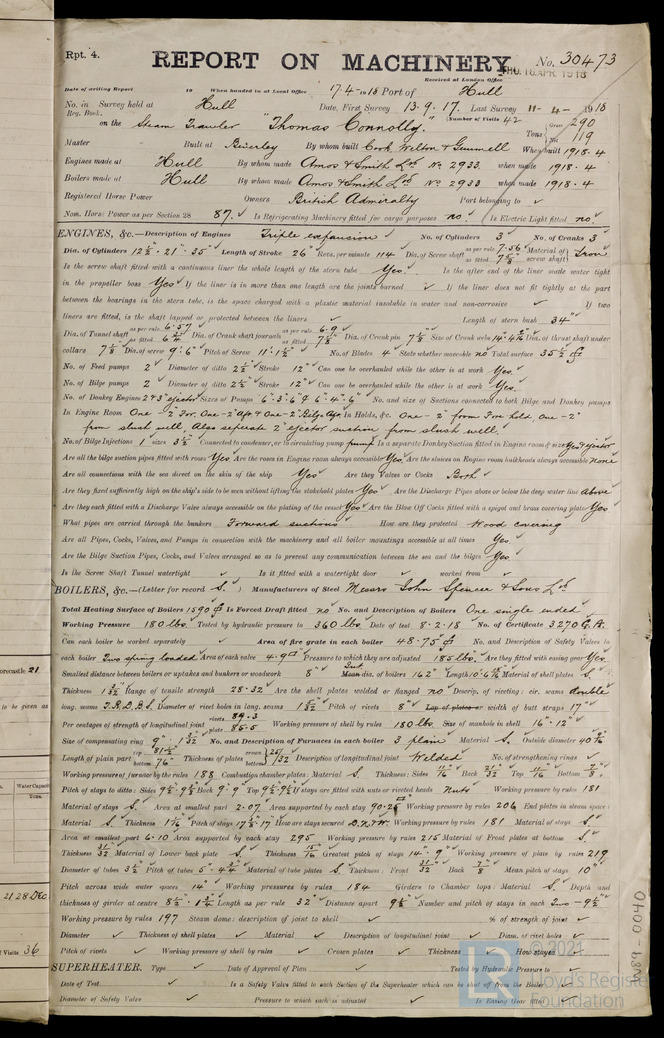 Rpt. 4.
REPORT ON MACHINERY.
No. 30473
Received at London Office THU. 18 APR. 1918
Date of writing Report 19 When handed in at Local Office 17.4.1918 Port of Hull
No. in Survey held at Hull Date, First Survey 13.9.17. Last Survey 11-4-1918
Reg. Book. (Number of Visits 42
on the Steam Trawler "Thomas Connolly." Tons Gross 290 Net 119
Master Built at Beverley By whom built Cook Welton & Gemmell When built 1918.4
Engines made at Hull By whom made Amos & Smith Ltd. No. 2933. when made 1918.4
Boilers made at Hull By whom made Amos & Smith Ltd. No. 2933 when made 1918.4
Registered Horse Power Owners British Admiralty Port belonging to ✓
Nom. Horse Power as per Section 28 87. Is Refrigerating Machinery fitted for cargo purposes no. Is Electric Light fitted no.
ENGINES, &c.—Description of Engines Triple expansion No. of Cylinders 3 No. of Cranks 3
Dia. of Cylinders 12½" . 21" . 35" Length of Stroke 26" Revs. per minute 114 Dia. of Screw shaft as per rule 7.56" as fitted 7⅞" Material of screw shaft Iron
Is the screw shaft fitted with a continuous liner the whole length of the stern tube Yes. Is the after end of the liner made water tight
in the propeller boss Yes If the liner is in more than one length are the joints burned ✓ If the liner does not fit tightly at the part
between the bearings in the stern tube, is the space charged with a plastic material insoluble in water and non-corrosive ✓ If two
liners are fitted, is the shaft lapped or protected between the liners ✓ Length of stern bush 34"
Dia. of Tunnel shaft as per rule 6.57 as fitted Dia. of Crank shaft journals as per rule 6.9 as fitted Dia. of Crank pin Size of Crank webs Dia. of thrust shaft under
collars Dia. of screw 9'.6" Pitch of Screw 11'.1½" No. of Blades 4 State whether moveable no Total surface 35½
No. of Feed pumps 2 Diameter of ditto 2½" Stroke 12" Can one be overhauled while the other is at work Yes.
No. of Bilge pumps 2 Diameter of ditto 2½" Stroke 12" Can one be overhauled while the other is at work Yes.
No. of Donkey Engines Sizes of Pumps No. and size of Suctions connected to both Bilge and Donkey pumps
In Engine Room One - 2" For. One - 2" Aft & One - 2" Bilge Aft In Holds, &c. One - 2" from Fore hold, one - 2"
from slush well, Also seperate 2" ejector suction from slush well.
No. of Bilge Injections 1 sizes 3½" Connected to condenser, or to circulating pump pump Is a separate Donkey Suction fitted in Engine room & size Yes ejector
Are all the bilge suction pipes fitted with roses Yes Are the roses in Engine room always accessible Yes Are the sluices on Engine room bulkheads always accessible none
Are all connections with the sea direct on the skin of the ship Yes Are they Valves or Cocks Both
Are they fixed sufficiently high on the ship's side to be seen without lifting the stokehold plates Yes Are the Discharge Pipes above or below the deep water line above
Are they each fitted with a Discharge Valve always accessible on the plating of the vessel Yes Are the Blow Off Cocks fitted with a spigot and brass covering plate Yes
What pipes are carried through the bunkers Forward suctions How are they protected Wood covering
Are all Pipes, Cocks, Valves, and Pumps in connection with the machinery and all boiler mountings accessible at all times Yes
Are the Bilge Suction Pipes, Cocks, and Valves arranged so as to prevent any communication between the sea and the bilges Yes
Is the Screw Shaft Tunnel watertight ✓ Is it fitted with a watertight door ✓ worked from ✓
BOILERS, &c.—(Letter for record S. ) Manufacturers of Steel Messrs John Spencer & Sons Ltd
Total Heating Surface of Boilers 1590 Is Forced Draft fitted no No. and Description of Boilers One single ended
Working Pressure 180 lbs. Tested by hydraulic pressure to 360 lbs. Date of test 8.2.18 No. of Certificate 3270
Can each boiler be worked separately ✓ Area of fire grate in each boiler 48.75 No. and Description of Safety Valves to
each boiler Two spring loaded Area of each valve 4.9 Pressure to which they are adjusted 185 lbs. Are they fitted with easing gear Yes.
Smallest distance between boilers or uptakes and bunkers or woodwork 8" dia. of boilers 162" Length Material of shell plates S.
Thickness Range of tensile strength 28.32 Are the shell plates welded or flanged no Descrip. of riveting: cir. seams double
long. seams T.R.D.B.S. Diameter of rivet holes in long. seams Pitch of rivets 8" Lap of plates or width of butt straps 17"
Per centages of strength of longitudinal joint rivets 89.3 plate 86.5 Working pressure of shell by rules 180 lbs. Size of manhole in shell 16" . 12"
Size of compensating ring No. and Description of Furnaces in each boiler 3 plain Material S. Outside diameter
Length of plain part top bottom 76" Thickness of plates crown bottom Description of longitudinal joint Welded No. of strengthening rings ✓
Working pressure of furnace by the rules 188 Combustion chamber plates: Material S. Thickness: Sides Back Top Bottom
Pitch of stays to ditto: Sides Back Top If stays are fitted with nuts or riveted heads Nuts Working pressure by rules 181
Material of stays S. Area at smallest part 2.07 Area supported by each stay Working pressure by rules 206 End plates in steam space:
Material S. Thickness Pitch of stays How are stays secured D.N.W. Working pressure by rules 181 Material of stays S.
Area at smallest part 6.10 Area supported by each stay 295 Working pressure by rules 215 Material of Front plates at bottom S.
Thickness Material of Lower back plate S. Thickness Greatest pitch of stays 14" . 9" Working pressure of plate by rules 219
Diameter of tubes 3½ Pitch of tubes Material of tube plates S. Thickness: Front Back Mean pitch of stays 10"
Pitch across wide water spaces 14" Working pressures by rules 184 Girders to Chamber tops: Material S. Depth and
thickness of girder at centre Length as per rule 32" Distance apart 9½" Number and pitch of stays in each Two - 9½"
Working pressure by rules 197 Steam dome: description of joint to shell ✓ % of strength of joint ✓
Diameter ✓ Thickness of shell plates ✓ Material ✓ Description of longitudinal joint ✓ Diam. of rivet holes ✓
Pitch of rivets ✓ Working pressure of shell by rules ✓ Crown plates ✓ Thickness ✓ How stayed ✓
SUPERHEATER. Type ✓ Date of Approval of Plan ✓ Tested by Hydraulic Pressure to ✓
Date of Test ✓ Is a Safety Valve fitted to each Section of the Superheater which can be shut off from the Boiler
Diameter of Safety Valve ✓ Pressure to which each is adjusted ✓ Is Easing Gear fitted
© 2021
Lloyd's Register
Foundation
W89-0040
Forecastle 21
to be given as
Water Capacity
Tons.
21 28 Dec
Visits 36